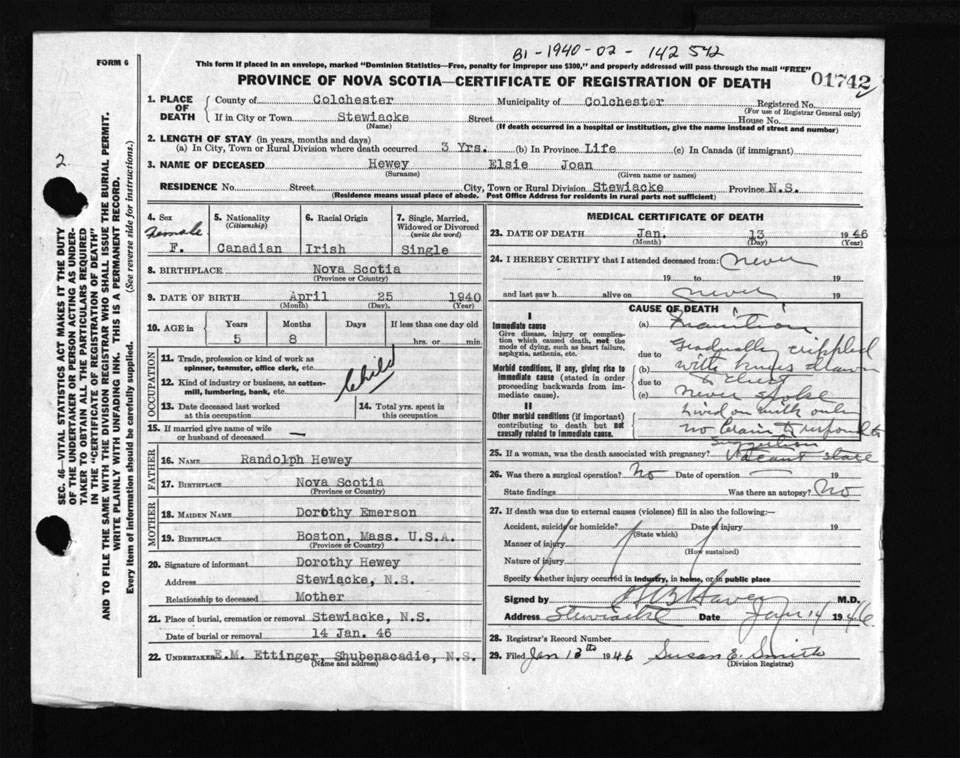 B1-1940-02-142542
FORM 6
This form if placed in an envelope, marked "Dominion Statistics—Free, penalty for improper use $300," and properly addressed will pass through the mail "FREE"
PROVINCE OF NOVA SCOTIA—CERTIFICATE OF REGISTRATION OF DEATH
01742
1. PLACE OF DEATH
County of Colchester Municipality of Colchester Registered No.
(For use of Registrar General only)
If in City or Town Stewiacke Street House No.
(Name) (If death occurred in a hospital or institution, give the name instead of street and number)
2. LENGTH OF STAY (in years, months and days)
(a) In City, Town or Rural Division where death occurred 3 Yrs. (b) In Province Life (c) In Canada (if immigrant)
3. NAME OF DECEASED Hewey Elsie Joan
(Surname) (Given name or names)
RESIDENCE No. Street City, Town or Rural Division Stewiacke Province N.S.
(Residence means usual place of abode. Post Office Address for residents in rural parts not sufficient)
4. Sex
Female
F.
5. Nationality
(Citizenship)
Canadian
6. Racial Origin
Irish
7. Single, Married, Widowed or Divorced
(write the word)
Single
8. BIRTHPLACE Nova Scotia
(Province or Country)
9. DATE OF BIRTH April 25 1940
(Month) (Day) (Year)
10. AGE in Years Months Days If less than one day old
5 8 hrs. or min.
OCCUPATION
11. Trade, profession or kind of work as spinner, teamster, office clerk, etc.
12. Kind of industry or business, as cotton-mill, lumbering, bank, etc.
Child
13. Date deceased last worked at this occupation
14. Total yrs. spent in this occupation
15. If married give name of wife or husband of deceased —
FATHER
16. Name Randolph Hewey
17. Birthplace Nova Scotia
(Province or Country)
MOTHER
18. Maiden Name Dorothy Emerson
19. Birthplace Boston, Mass. U.S.A.
(Province or Country)
20. Signature of informant Dorothy Hewey
Address Stewiacke, N.S.
Relationship to deceased Mother
21. Place of burial, cremation or removal Stewiacke, N.S.
Date of burial or removal 14 Jan. 46
22. Undertaker E.M. Ettinger, Shubenacadie, N.S.
(Name and address)
MEDICAL CERTIFICATE OF DEATH
23. DATE OF DEATH Jan. 13 1946
(Month) (Day) (Year)
24. I HEREBY CERTIFY that I attended deceased from: Never
19 to 19
and last saw h alive on never 19
CAUSE OF DEATH
I
Immediate cause
Give disease, injury or complication which caused death, not the mode of dying, such as heart failure, asphyxia, asthenia, etc.
(a) Inanition
due to
Gradually crippled
Morbid conditions, if any, giving rise to immediate cause (stated in order proceeding backwards from immediate cause).
(b) with knees drawn
due to to chest
(c) never spoke
II
Other morbid conditions (if important) contributing to death but not causally related to immediate cause.
lived on milk only
no brain to respond to
vacant state
25. If a woman, was the death associated with pregnancy?
26. Was there a surgical operation? No Date of operation 19
State findings Was there an autopsy? No
27. If death was due to external causes (violence) fill in also the following:—
Accident, suicide or homicide? Date of injury 19
(State which)
Manner of injury
(How sustained)
Nature of injury
Specify whether injury occurred in industry, in home, or in public place
Signed by M.D.
Address Stewiacke Date Jan 14 1946
28. Registrar's Record Number
29. Filed Jan 13th 1946 Susan E. Smith
(Division Registrar)
2
SEC. 46—VITAL STATISTICS ACT MAKES IT THE DUTY
OF THE UNDERTAKER OR PERSON ACTING AS UNDER-
TAKER TO OBTAIN ALL THE PARTICULARS REQUIRED
IN THE "CERTIFICATE OF REGISTRATION OF DEATH"
AND TO FILE THE SAME WITH THE DIVISION REGISTRAR WHO SHALL ISSUE THE BURIAL PERMIT.
WRITE PLAINLY WITH UNFADING INK. THIS IS A PERMANENT RECORD.
Every item of information should be carefully supplied. (See reverse side for instructions.)